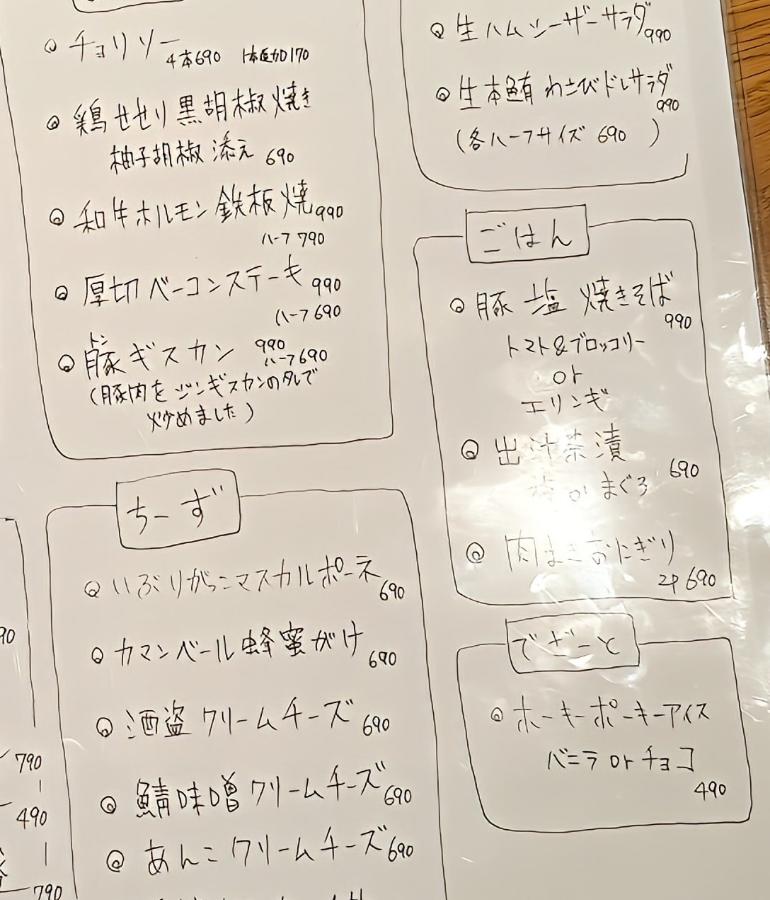 チョリソー 4本690 1本追加170
鶏せせり黒胡椒焼き
柚子胡椒添え 690
和牛ホルモン鉄板焼 990
ハーフ 790
厚切ベーコンステーキ 990
ハーフ 690
豚ギスカン 990
トン
ハーフ690
(豚肉をジンギスカンのタレで
炒めました)
ちーず
いぶりがっこマスカルポーネ 690
カマンベール蜂蜜がけ 690
酒盗クリームチーズ 690
鯖味噌クリームチーズ 690
あんこクリームチーズ 690
生ハムシーザーサラダ 990
生本鮪わさびドレサラダ 990
(各ハーフサイズ 690)
ごはん
豚塩焼きそば 990
トマト&ブロッコリー
or
エリンギ
出汁茶漬 690
or まぐろ
肉まきおにぎり
2P 690
でざーと
ホーキーポーキーアイス
バニラ or チョコ
490
90
790
490
790